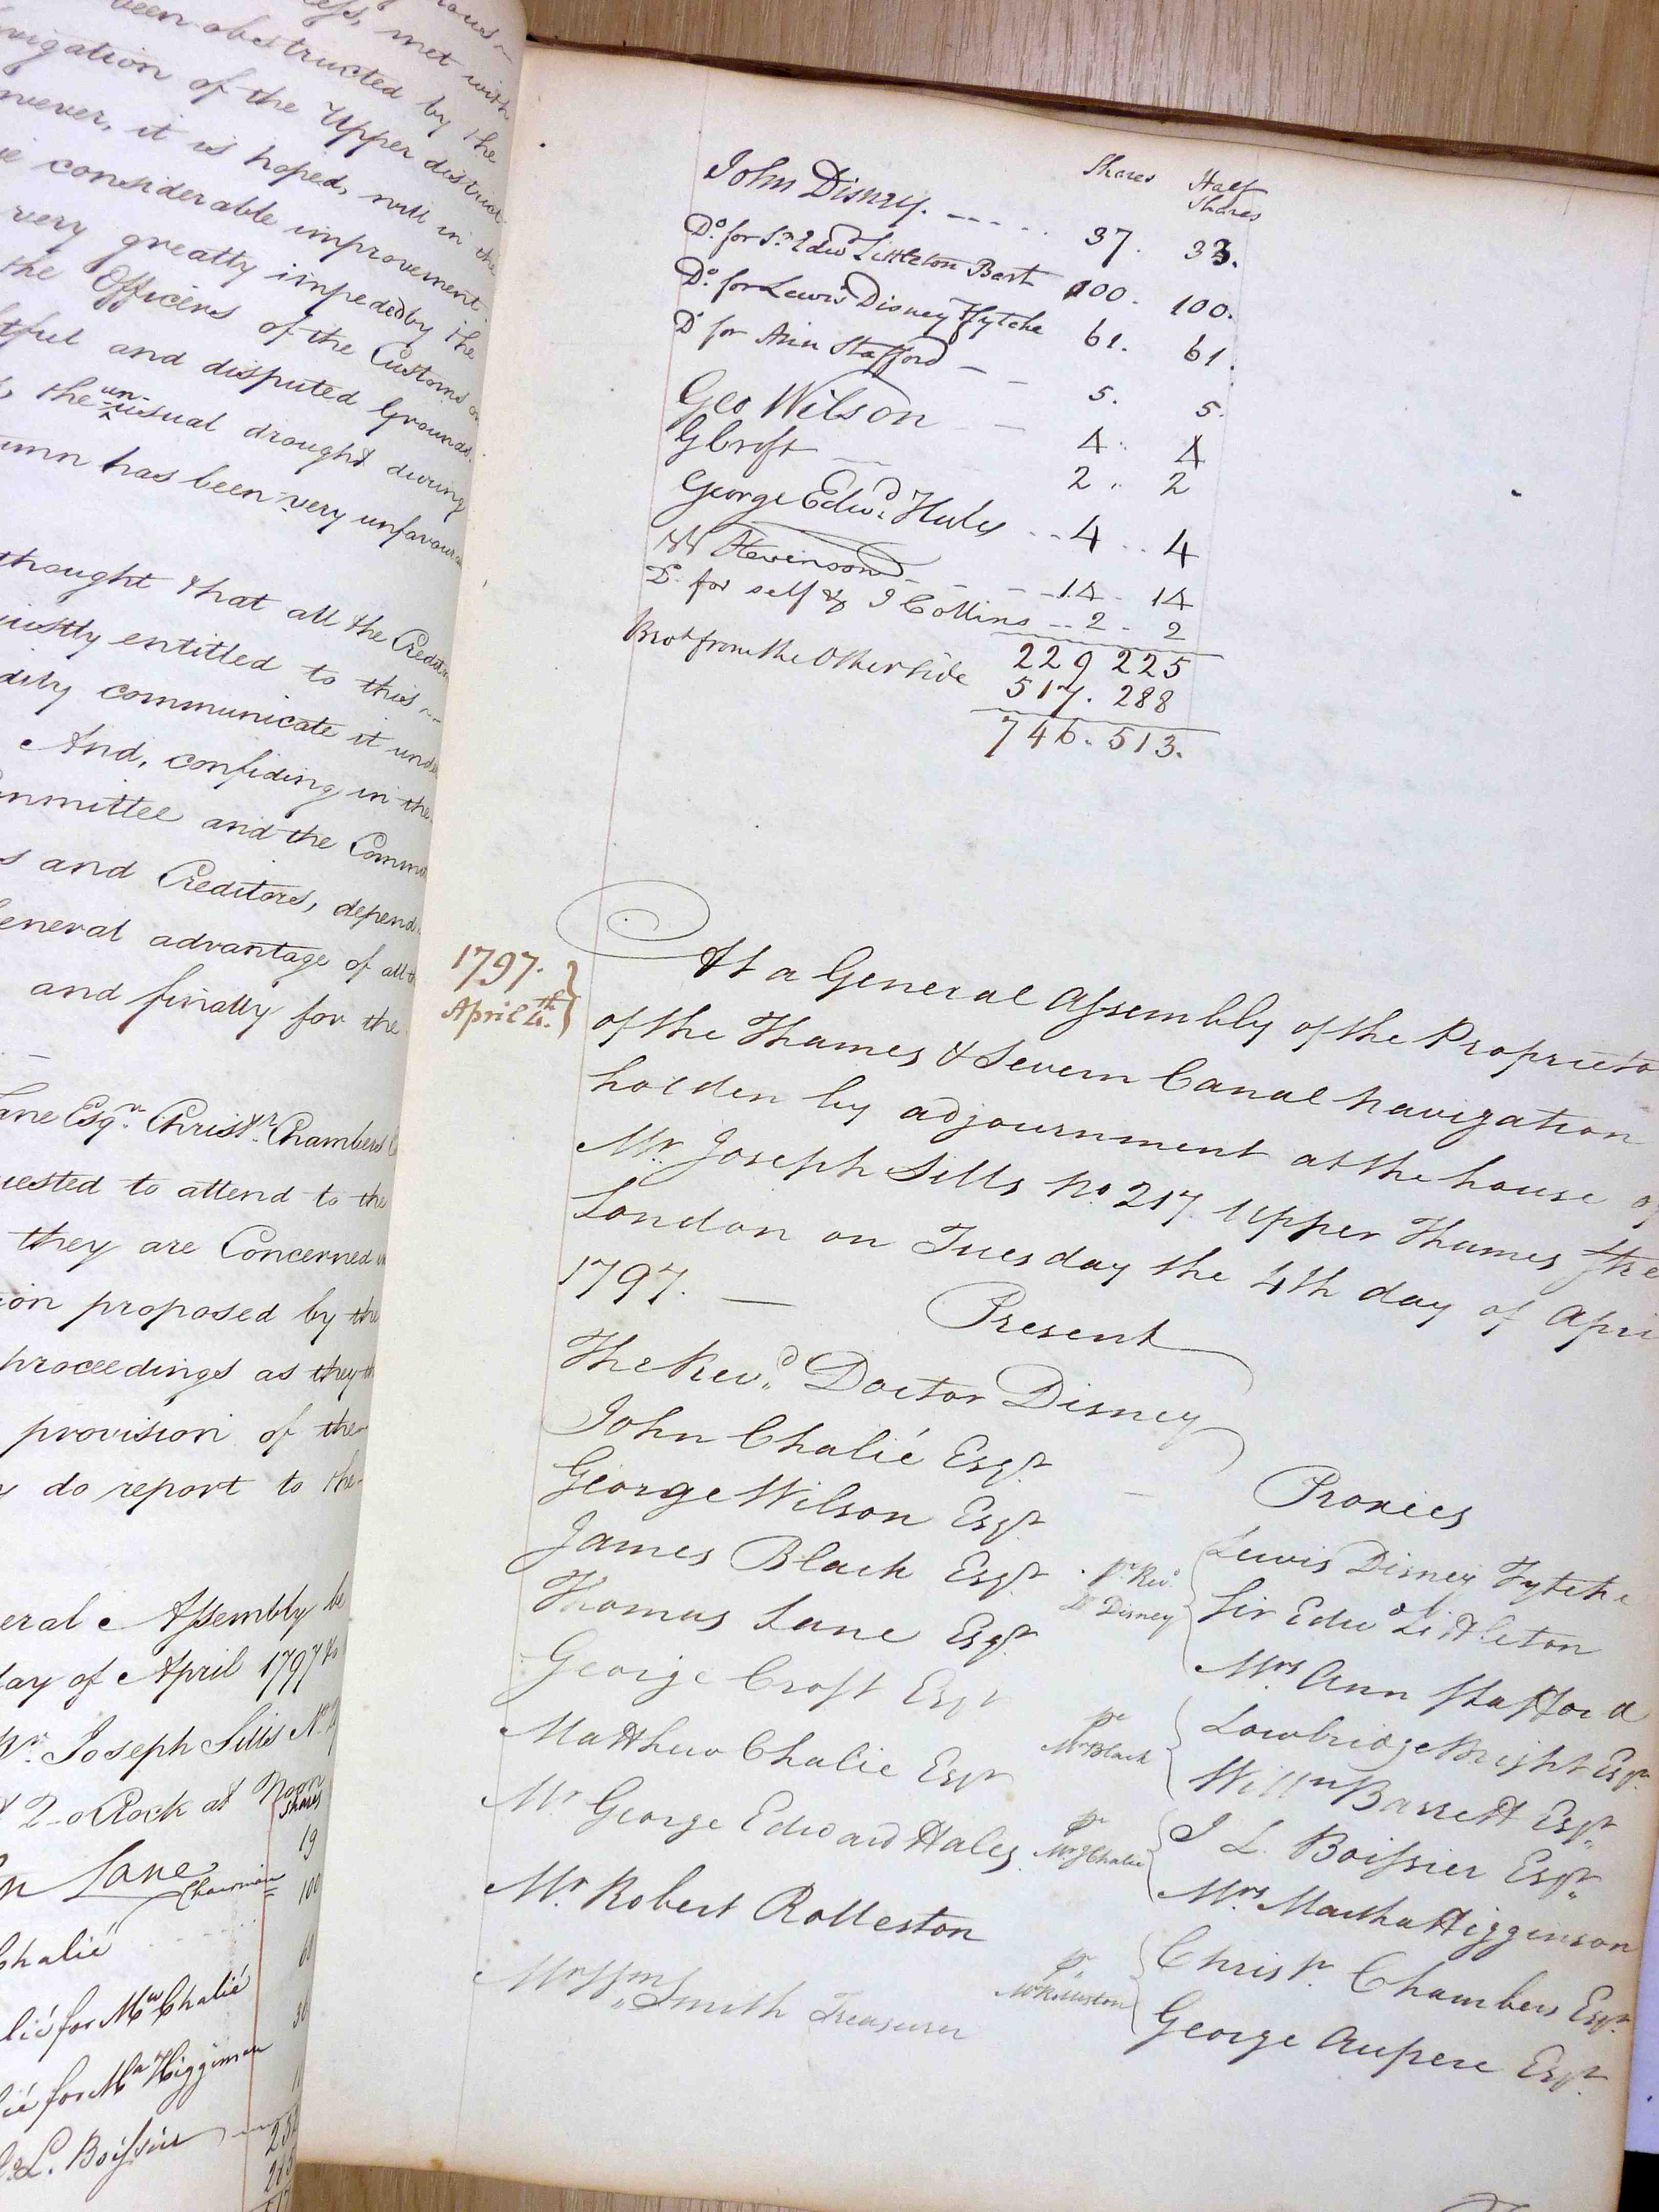 been obstructed by the
navigation of the Upper district
however, it is hoped, will in the
considerable improvement.
very greatly impeded by the
the Officers of the Customs on
and disputed Grounds.
the un-usual drought during
has been very unfavour
thought that all the Credit
justly entitled to this
communicate it unde
And, confiding in the
Committee and the Comm
s and Creditors, depend
General advantage of all th
and finally for the
Lane Esqr. Christr. Chambers
quested to attend to the
they are Concerned in
proposed by the
proceedings as they th
provision of the
do report to the
General Assembly be
day of April 1797 to
Mr. Joseph Sills No. 2
2 o Clock at Noon
Shares
Lane 19
Chairman
Chalié 100
lié for Mw Chalié 60
lié for Ma Higginson 30
L. Boissier
Shares Half Shares
John Disney. 37. 33.
Do. for Sr. Edwd Littleton Bart 100. 100.
Do. for Lewis Disney Ffytche 61. 61.
Do for Ann Stafford 5. 5.
Geo Wilson 4. 4
G Croft 2. 2
George Edwd. Hales 4 4
W Stevenson 14 14
Do. for self & J Collins 2 2
229 225
Brot from the Other Side 517. 288
746. 513.
1797.
April 4th.
At a General Assembly of the Proprieto
of the Thames & Severn Canal Navigation
holden by adjournment at the house of
Mr. Joseph Sills No. 217 Upper Thames Stre
London on Tuesday the 4th day of Apri
1797.
Present
The Revd. Doctor Disney
John Chalié Esqr.
George Wilson Esqr.
James Black Esqr.
Thomas Lane Esqr.
George Croft Esqr
Matthew Chalie Esqr
Mr George Edward Hales
Mr. Robert Rolleston
Mr Wm. Smith Treasurer
Proxies
pr. Revd. Dr Disney
Lewis Disney Fytche
Sir Edwd Littleton
Mrs Ann Stafford
pr Mr Black
Lowbridge Bright Esqr.
Willm Barrett Esqr.
pr Mr J Chalie
J L. Boissier Esqr.
Mrs. Martha Higginson
pr. Mr Rolleston
Christr. Chambers Esqr.
George Aupere Esqr.